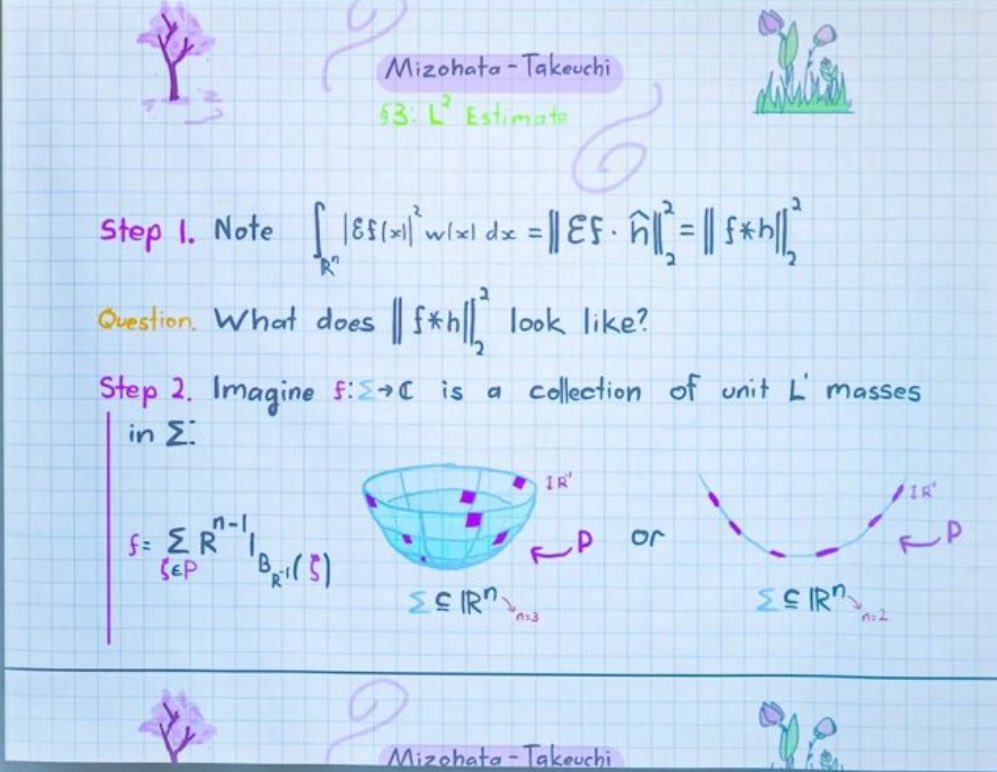 Mizohata - Takeuchi
§3: L² Estimate
Step 1. Note ∫_{ℝⁿ} |Ɛf(x)|² w(x) dx = ‖Ɛf · ĥ‖₂² = ‖f*h‖₂²
Question. What does ‖f*h‖₂² look like?
Step 2. Imagine f: Σ→ℂ is a collection of unit L¹ masses
in Σ:
f = Σ_{ζ∈P} R^{n-1} 1_{B_{R^{-1}}(ζ)}
IR⁻¹
P
or
IR⁻¹
P
Σ ⊆ ℝⁿ n=3
Σ ⊆ ℝⁿ n=2
Mizohata - Takeuchi